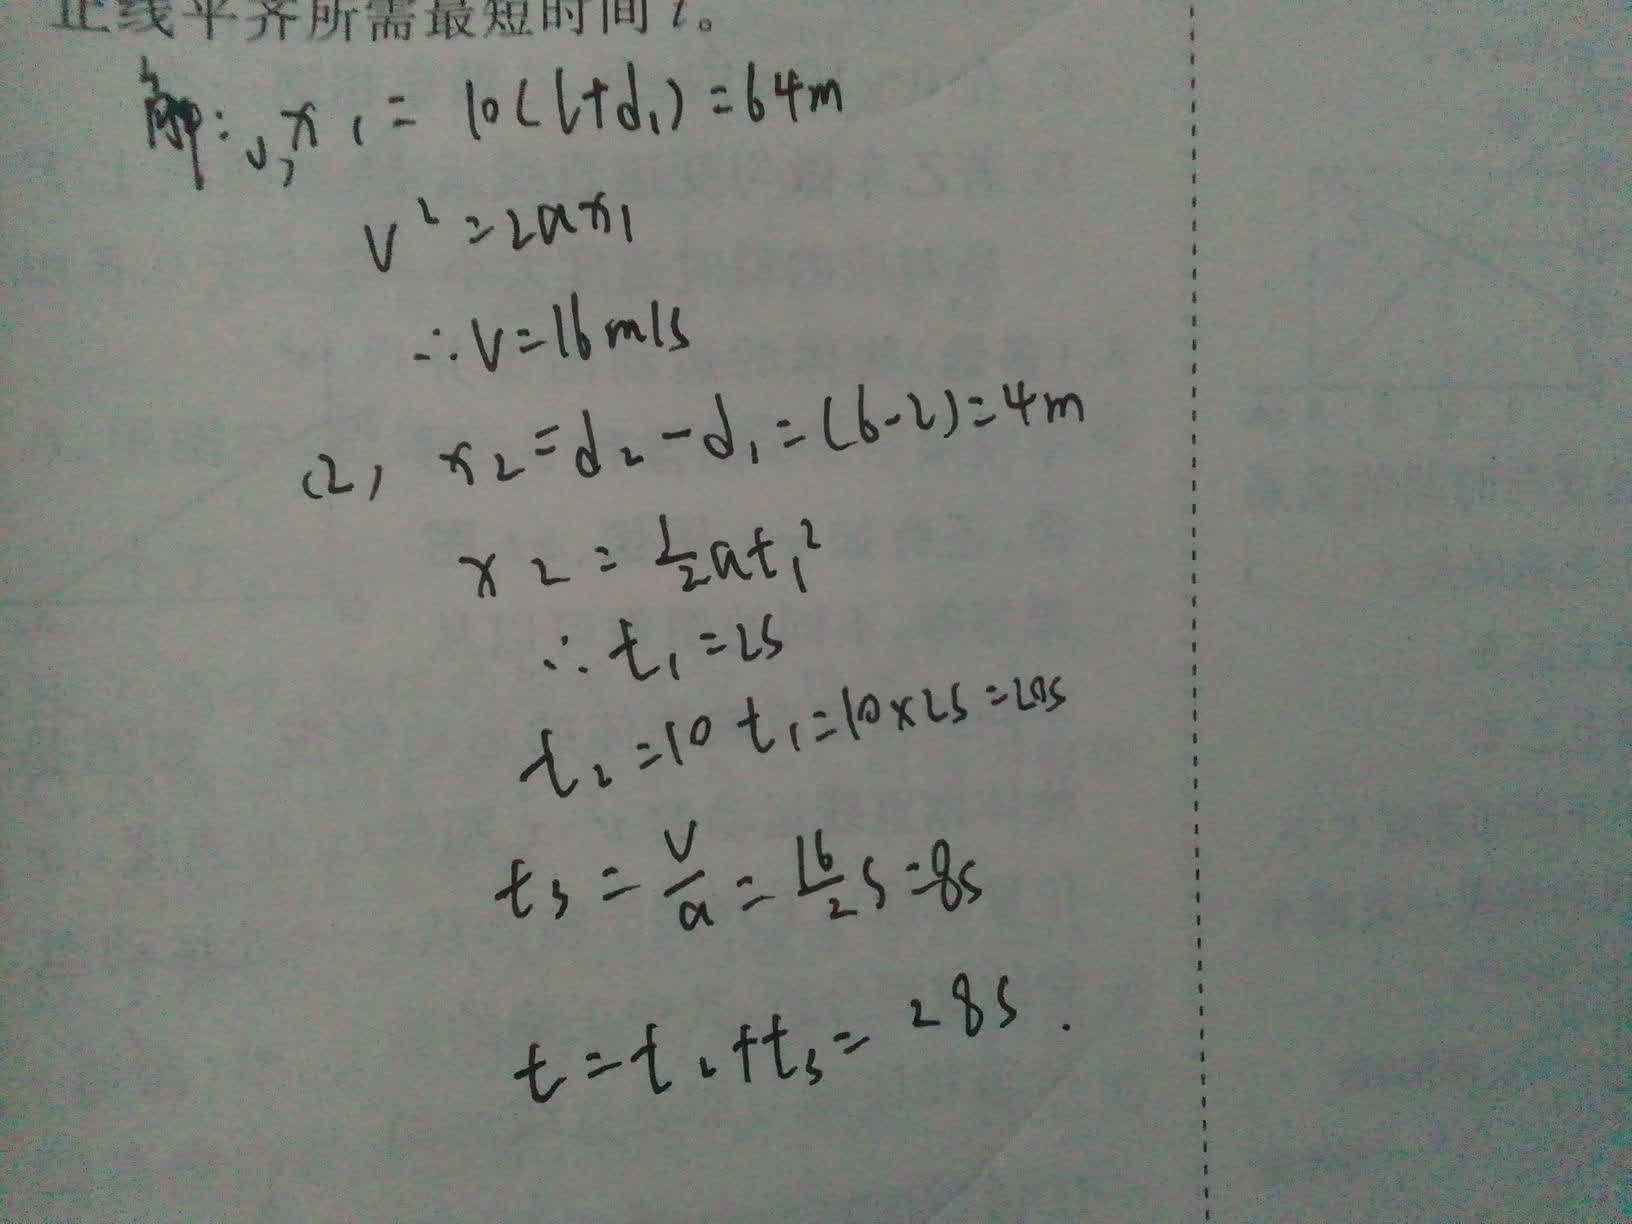 止线平齐所需最短时间t。
解:(1)x₁=10(l+d₁)=64m
v²=2ax₁
∴v=16m/s
(2) x₂=d₂-d₁=(6-2)=4m
x₂=½at₁²
∴t₁=2s
t₂=10t₁=10×2s=20s
t₃=v/a=16/2s=8s
t=t₂+t₃=28s.